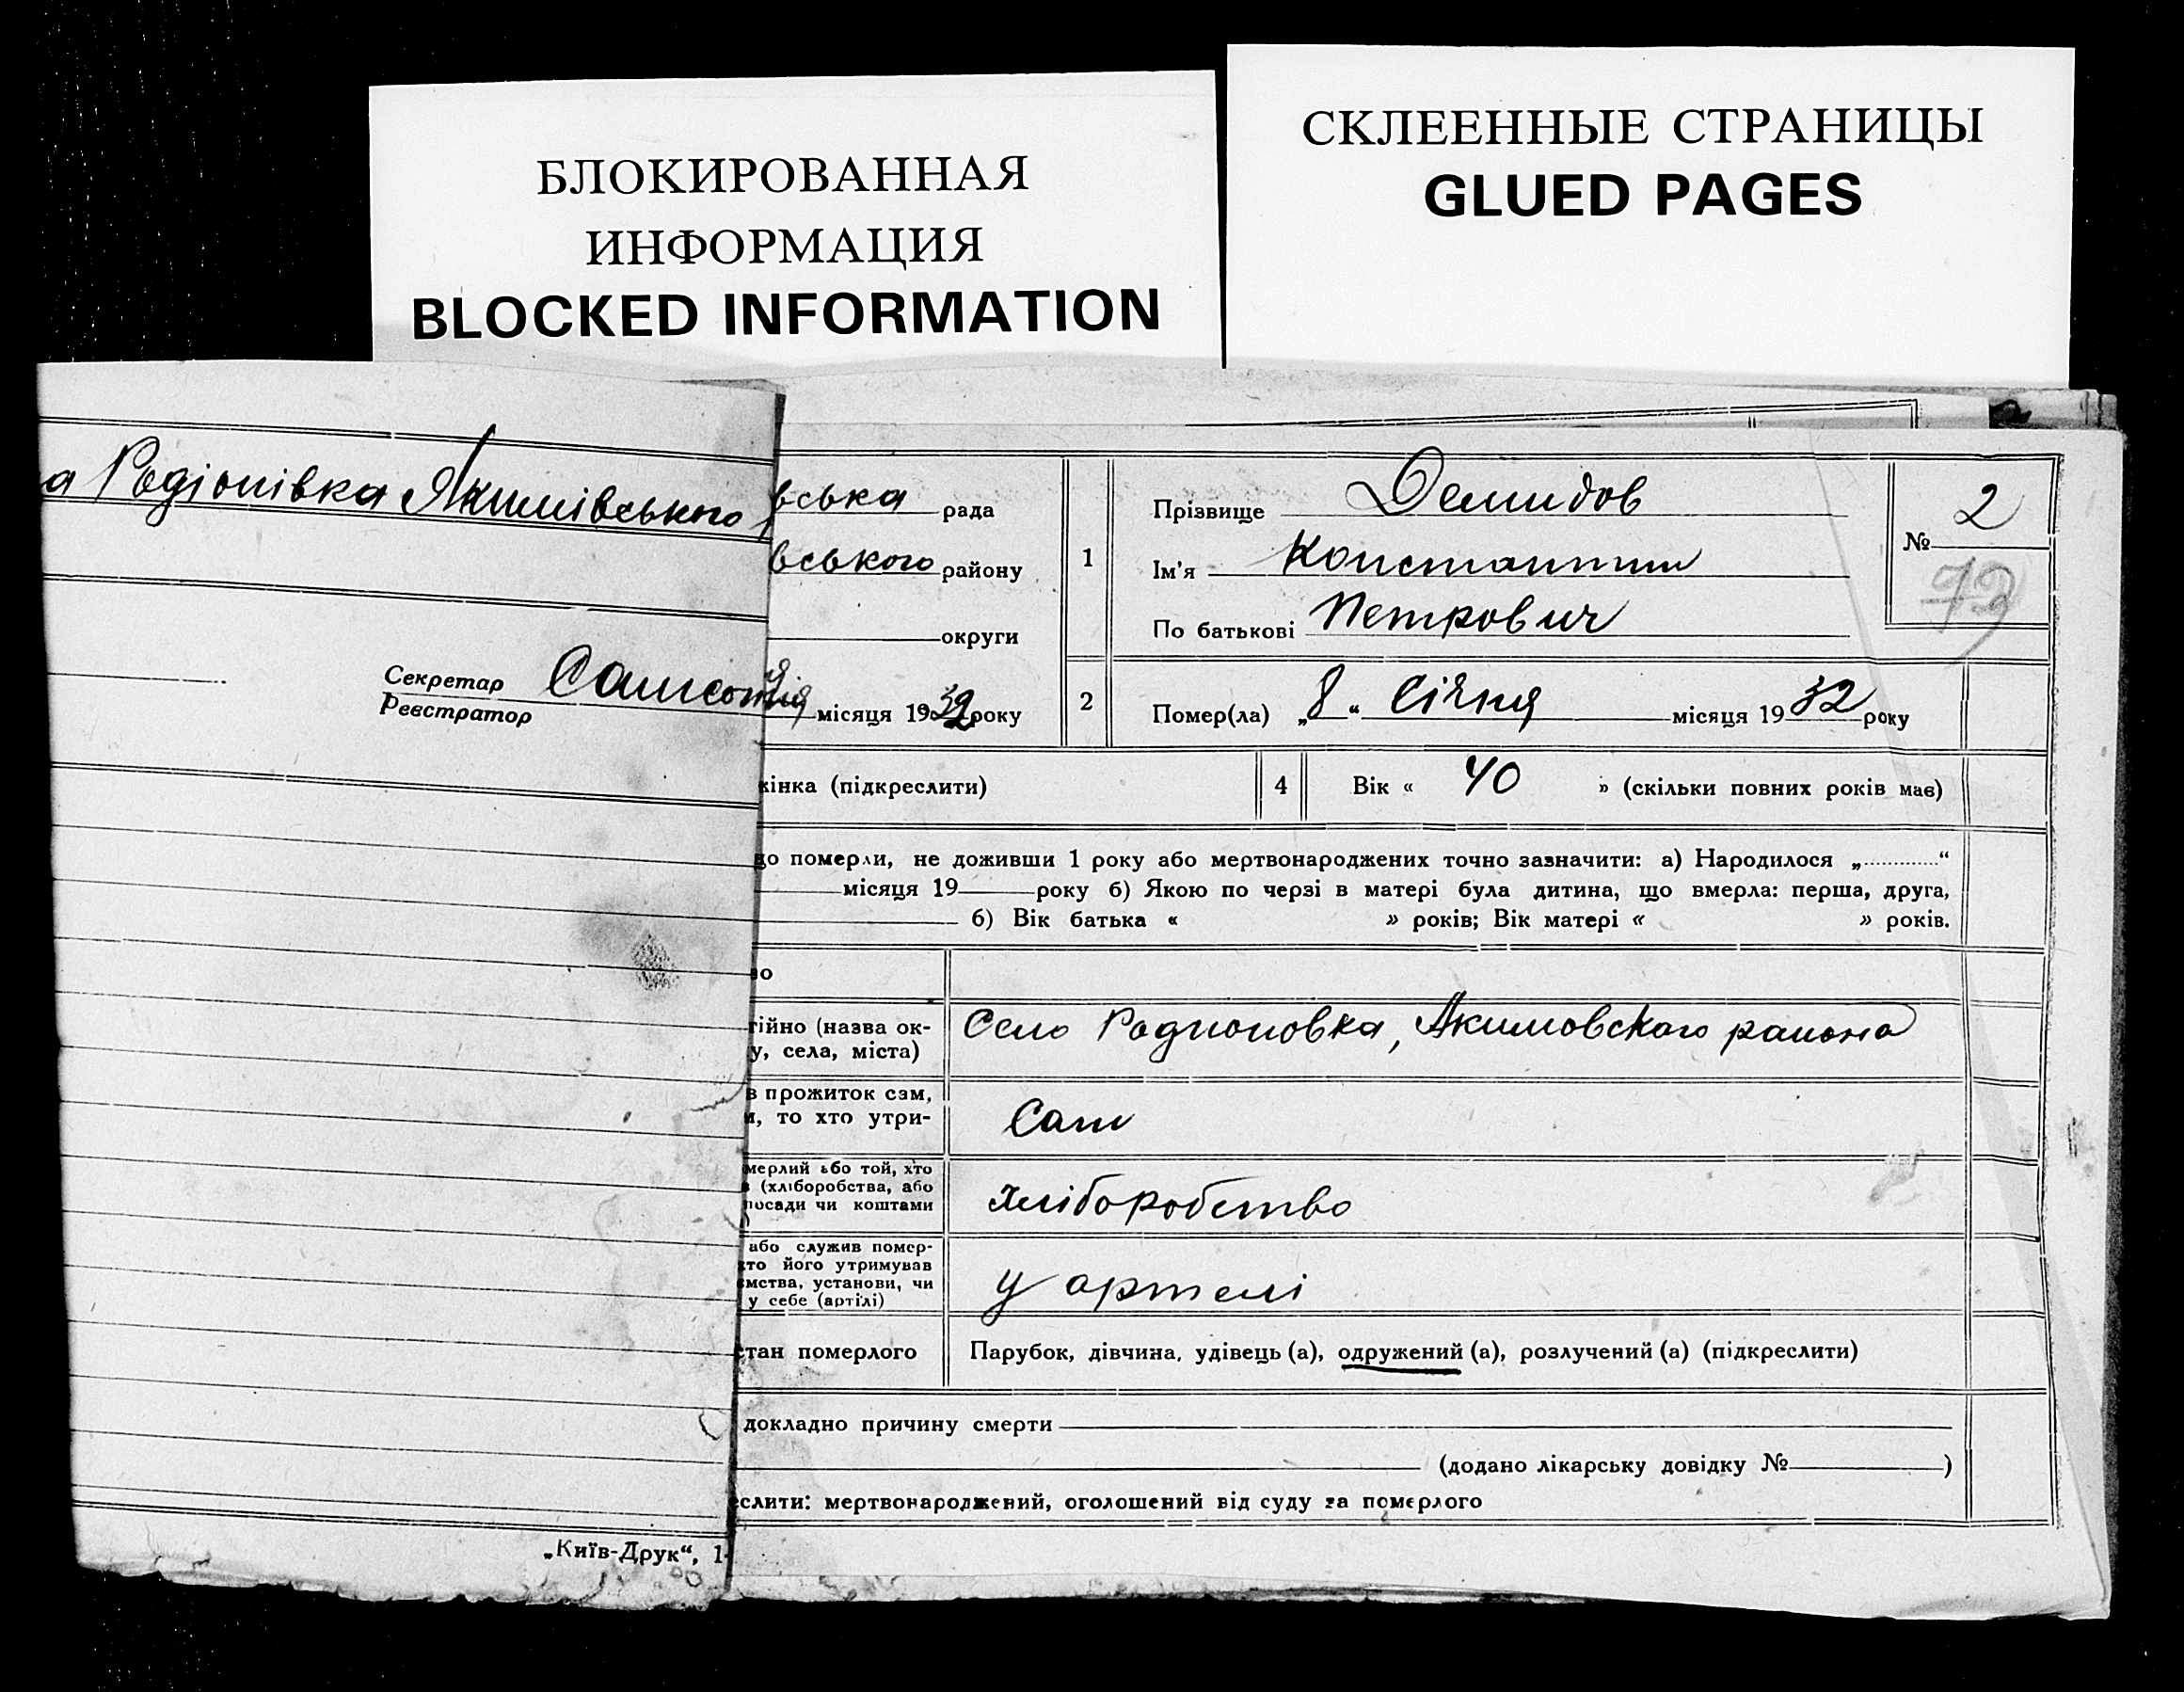 БЛОКИРОВАННАЯ
ИНФОРМАЦИЯ
BLOCKED INFORMATION
СКЛЕЕННЫЕ СТРАНИЦЫ
GLUED PAGES
а Родіонівка Якимівського
Секретар
Реєстратор
„Київ-Друк“, 1
вська рада
вського району
округи
місяця 1932 року
1
Прізвище Демидов
Ім'я Константин
По батькові Петрович
№ 2
73
2
Помер(ла) „8“ Січня місяця 1932 року
інка (підкреслити)
4
Вік « 40 » (скільки повних років має)
о померли, не доживши 1 року або мертвонароджених точно зазначити: а) Народилося „............“
місяця 19 року б) Якою по черзі в матері була дитина, що вмерла: перша, друга,
б) Вік батька « » років; Вік матері « » років.
о
тійно (назва ок-
у, села, міста)
Село Родионовка, Акимовского района
в прожиток сам,
и, то хто утри-
Сам
мерлий або той, хто
в (хліборобства, або
посади чи коштами
)
хліборобство
або служив помер-
то його утримував
мства, установи, чи
у себе (артілі)
у артелі
стан померлого
Парубок, дівчина, удівець (а), одружений (а), розлучений (а) (підкреслити)
докладно причину смерти
(додано лікарську довідку № )
еслити: мертвонароджений, оголошений від суду за померлого